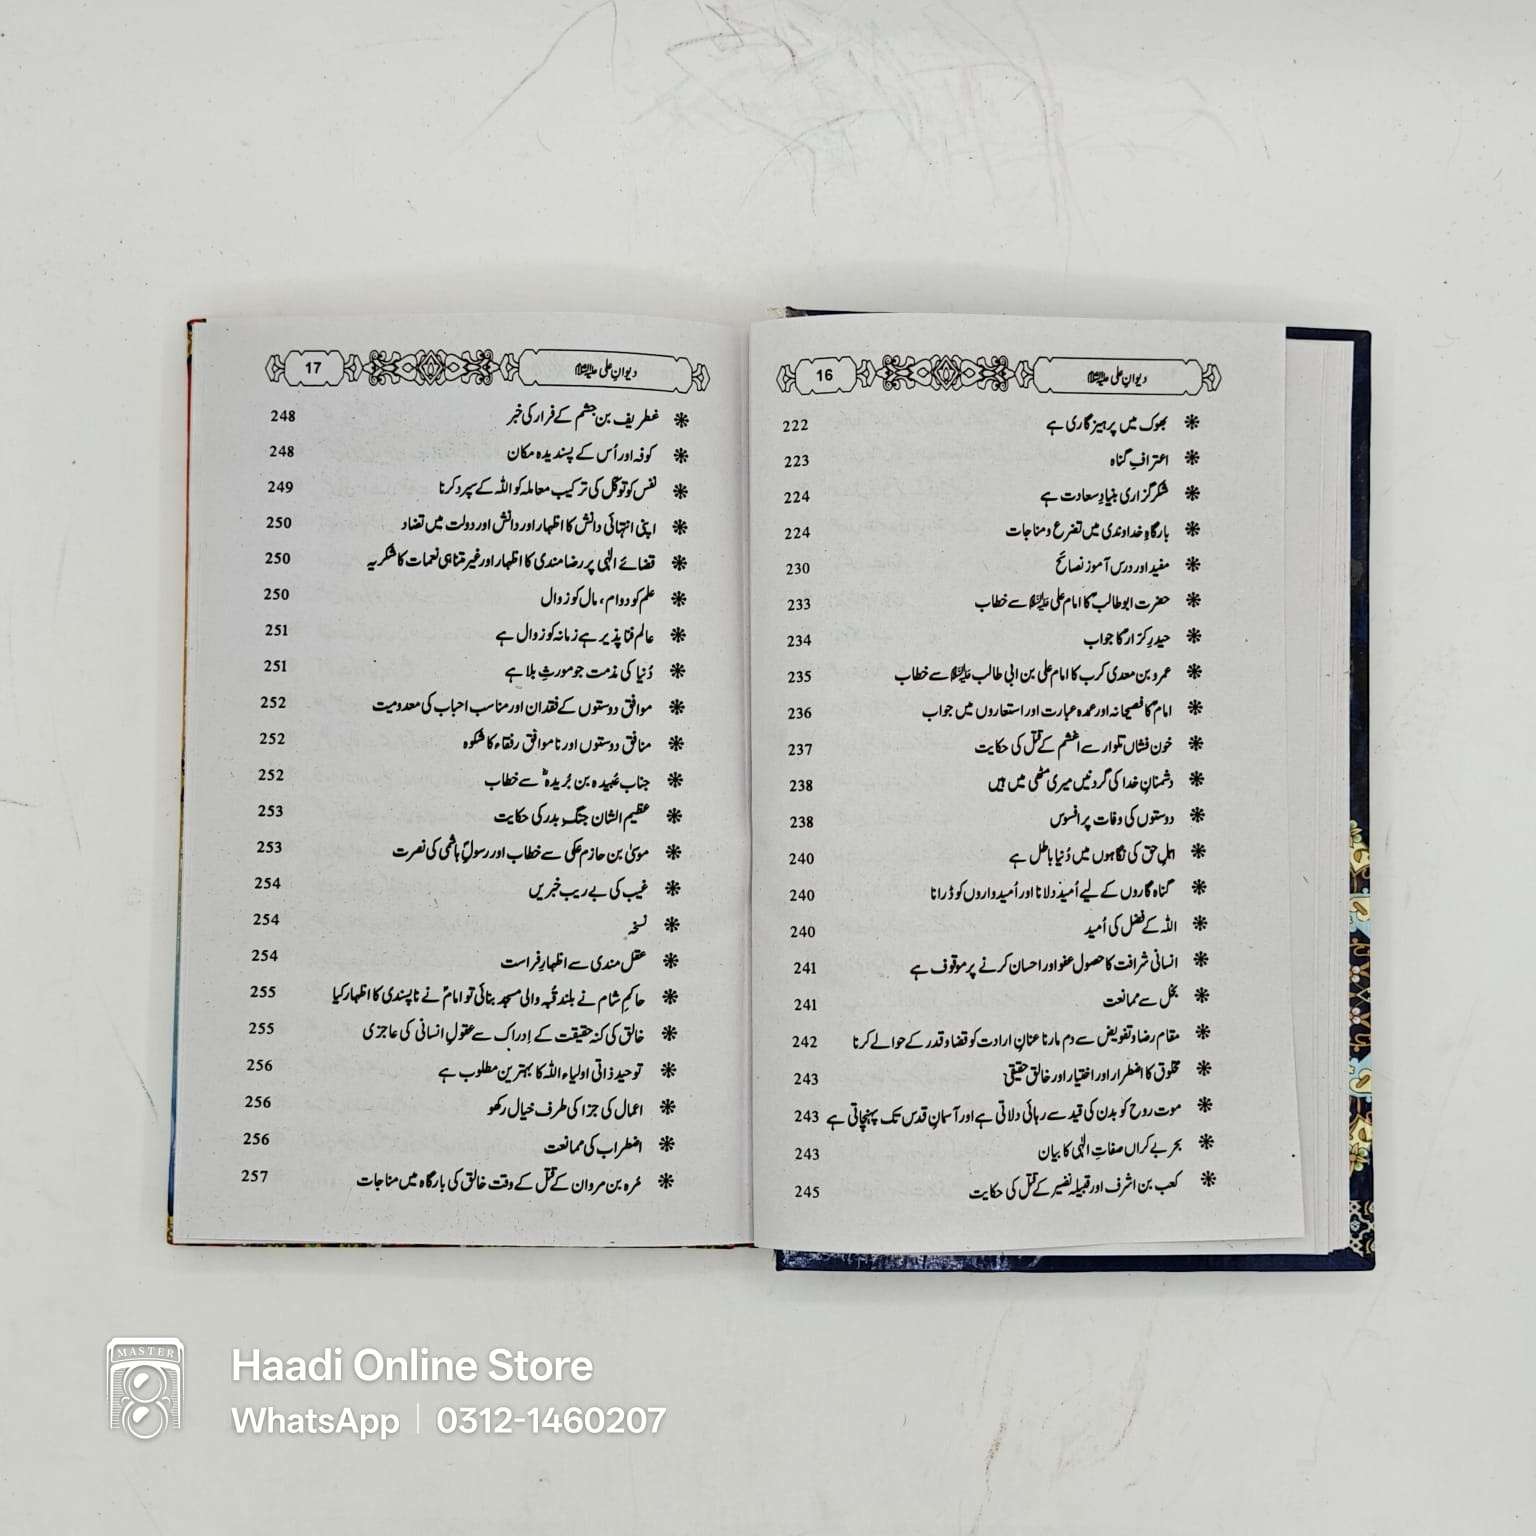 دیوانِ علی علیہ السلام 16
بھوک میں پرہیزگاری ہے 222
اعترافِ گناہ 223
شکرگزاری بنیادِ سعادت ہے 224
بارگاہِ خداوندی میں تضرع و مناجات 224
مفید اور درس آموز نصائح 230
حضرت ابوطالبؑ کا امام علی علیہ السلام سے خطاب 233
حیدرِ کرّارؑ کا جواب 234
عمرو بن معدی کرب کا امام علی بن ابی طالب علیہ السلام سے خطاب 235
امامؑ کا فصیحانہ اور عمدہ عبارت اور استعاروں میں جواب 236
خون فشاں تلوار سے اغشم کے قتل کی حکایت 237
دشمنانِ خدا کی گردنیں میری مٹھی میں ہیں 238
دوستوں کی وفات پر افسوس 238
اہلِ حق کی نگاہوں میں دُنیا باطل ہے 240
گناہ گاروں کے لیے اُمید دلانا اور اُمیدواروں کو ڈرانا 240
اللہ کے فضل کی اُمید 240
انسانی شرافت کا حصول عفو اور احسان کرنے پر موقوف ہے 241
بخل سے ممانعت 241
مقام رضا و تفویض سے دم مارنا عنانِ ارادت کو قضا و قدر کے حوالے کرنا 242
مخلوق کا اضطرار اور اختیار اور خالقِ حقیقی 243
موت روح کو بدن کی قید سے رہائی دلاتی ہے اور آسمانِ قدس تک پہنچاتی ہے 243
بحرِ بے کراں صفاتِ الٰہی کا بیان 243
کعب بن اشرف اور قبیلہ نضیر کے قتل کی حکایت 245
دیوانِ علی علیہ السلام 17
غطریف بن جشم کے فرار کی خبر 248
کوفہ اور اُس کے پسندیدہ مکان 248
نفس کو توکّل کی ترکیب معاملہ کو اللہ کے سپرد کرنا 249
اپنی انتہائی دانش کا اظہار اور دانش اور دولت میں تضاد 250
قضائے الٰہی پر رضا مندی کا اظہار اور غیر متناہی نعمات کا شکریہ 250
علم کو دوام، مال کو زوال 250
عالم فنا پذیر ہے زمانہ کو زوال ہے 251
دُنیا کی مذمت جو مورثِ بلا ہے 251
موافق دوستوں کے فقدان اور مناسب احباب کی معدومیت 252
منافق دوستوں اور ناموافق رفقاء کا شکوہ 252
جناب عُبیدہ بن بُریدہؓ سے خطاب 252
عظیم الشان جنگِ بدر کی حکایت 253
موسیٰ بن حازم عکی سے خطاب اور رسولِؐ ہاشمی کی نصرت 253
غیب کی بے ریب خبریں 254
نسخہ 254
عقل مندی سے اظہارِ فراست 254
حاکمِ شام نے بلند قُبہ والی مسجد بنائی تو امامؑ نے ناپسندی کا اظہار کیا 255
خالق کی کنہ حقیقت کے اِدراک سے عقولِ انسانی کی عاجزی 255
توحید ذاتی اولیاء اللہ کا بہترین مطلوب ہے 256
اعمال کی جزا کی طرف خیال رکھو 256
اضطراب کی ممانعت 256
مُرہ بن مروان کے قتل کے وقت خالق کی بارگاہ میں مناجات 257
MASTER
Haadi Online Store
WhatsApp | 0312-1460207